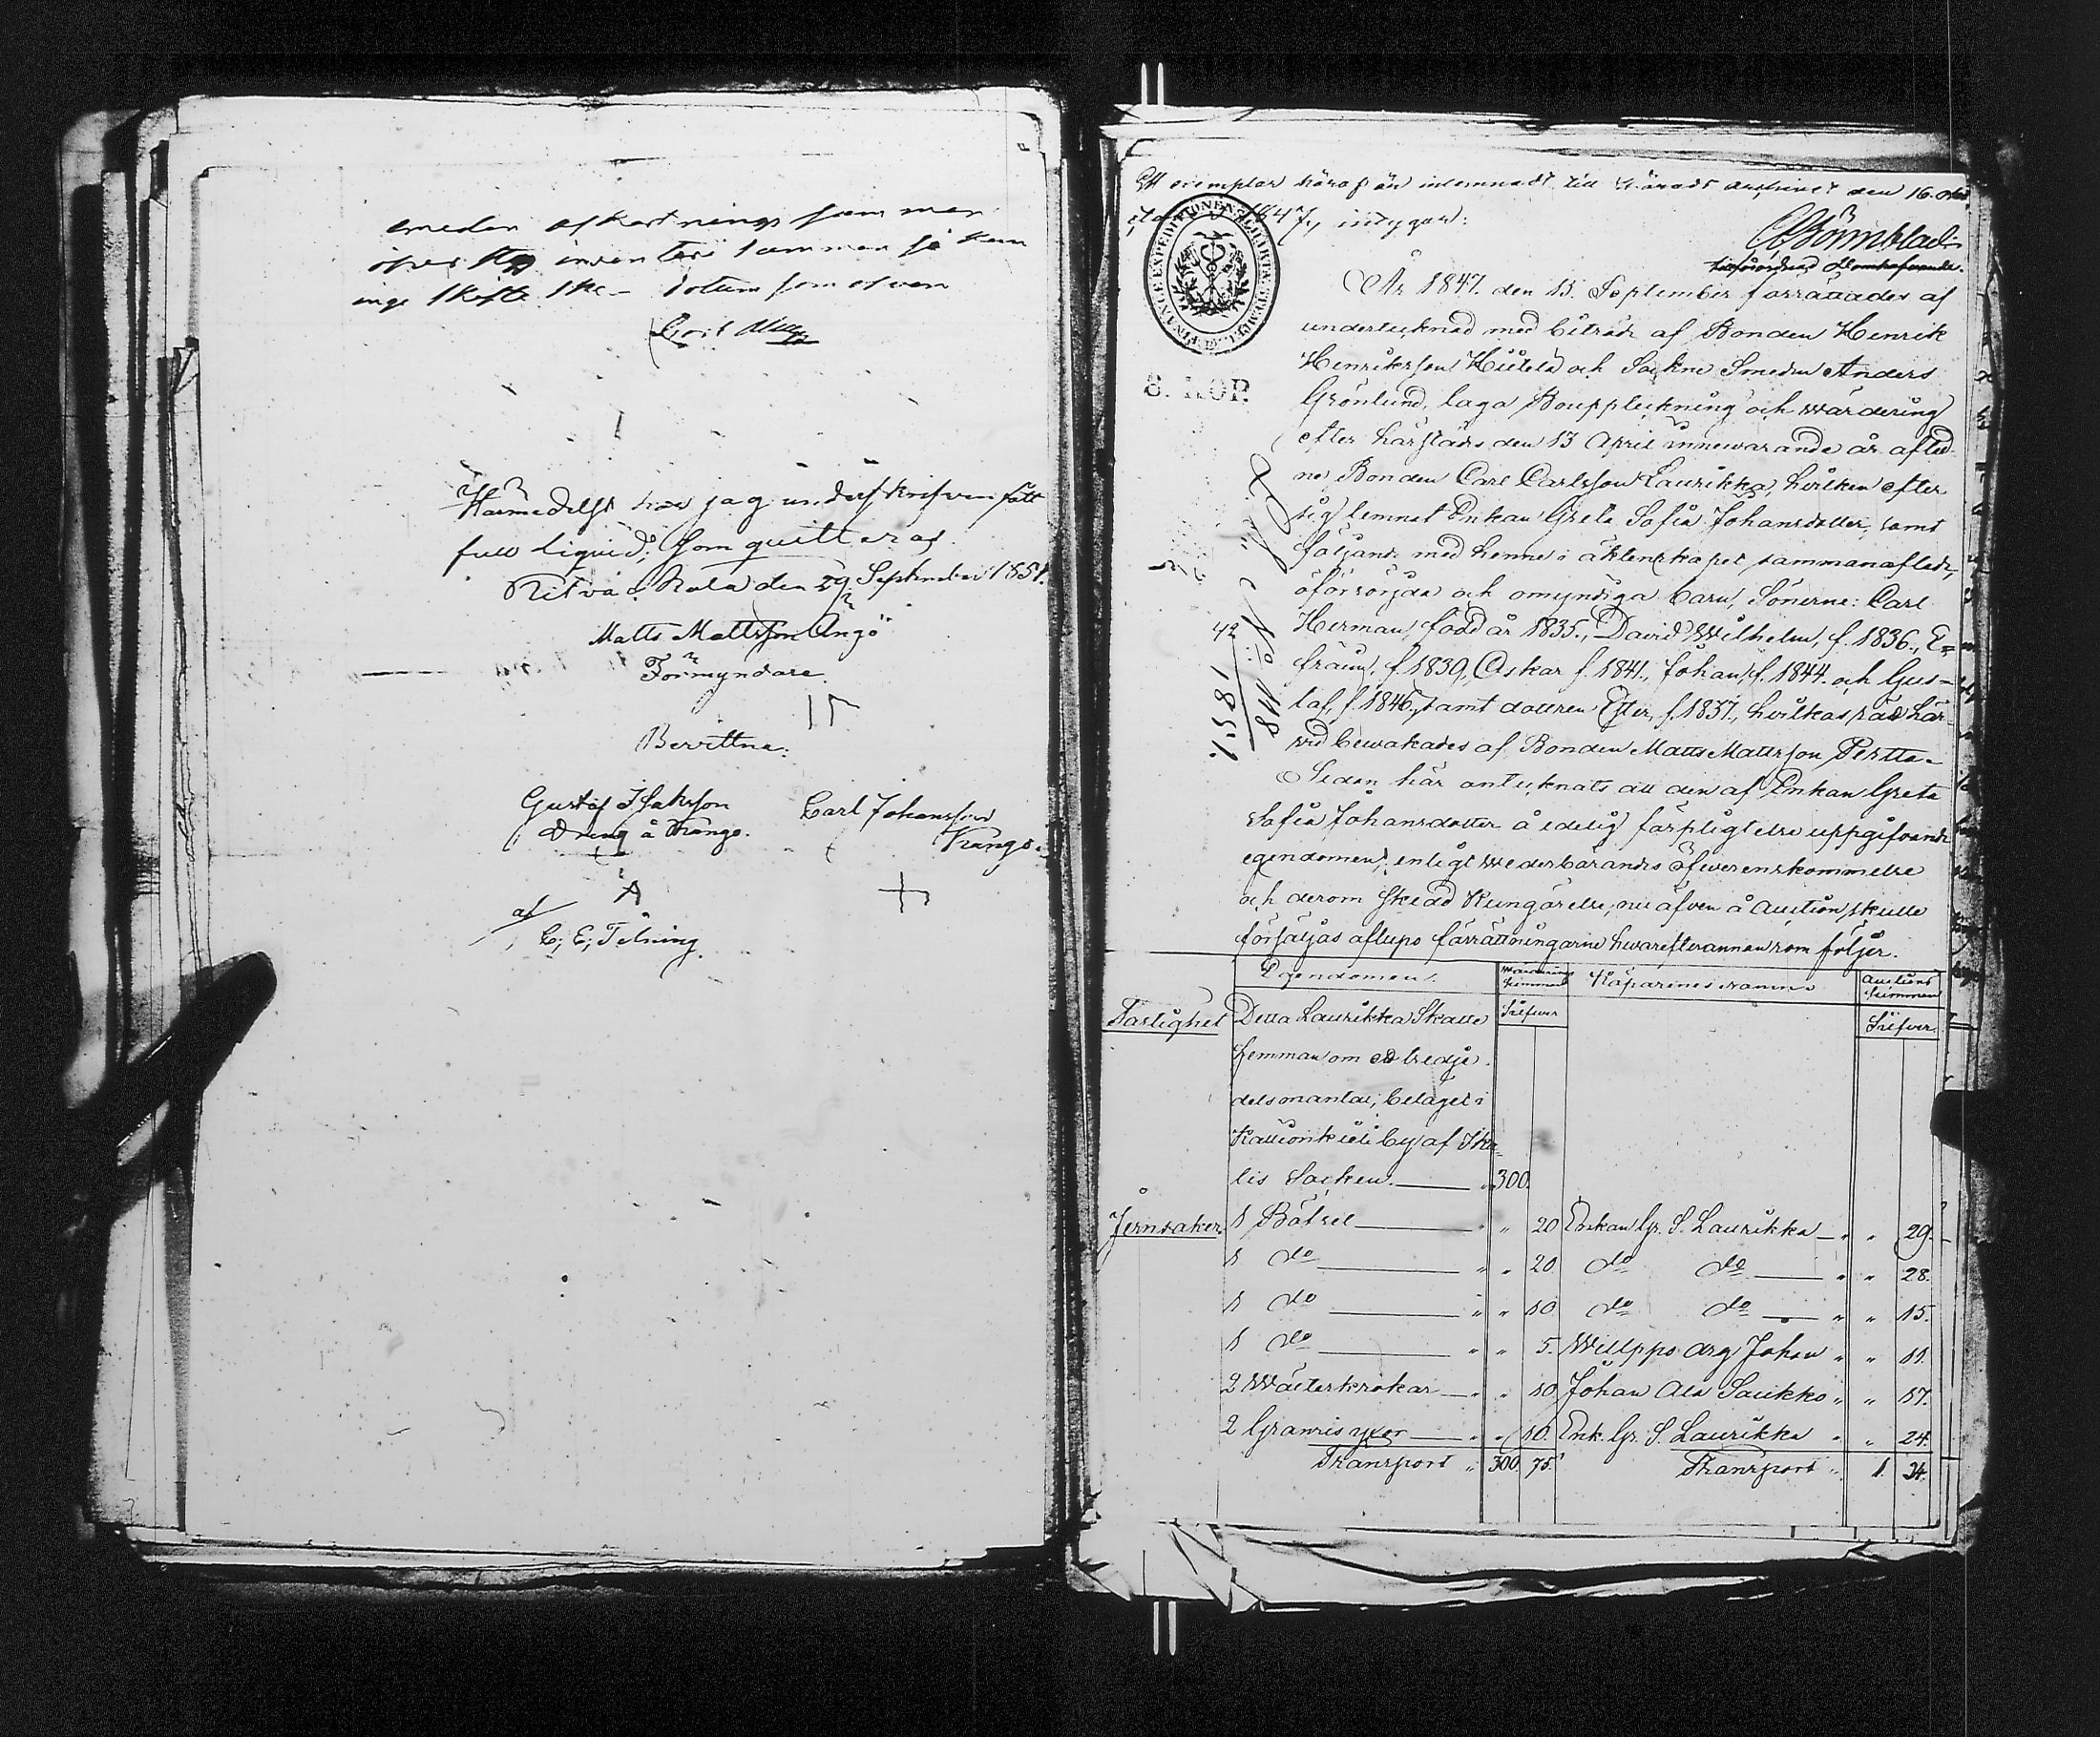 emedan afkortnings summan
inventarii summan så kan
inge skifte ske – Datum som ofvan
Härmedelst har jag underskrifven fått
full liquid; som quitteras.
Ritvala den 29 September 1851.
Matts Mattsson Ångö
Förmyndare.
Bevittna:
Gustaf Isaksson
Dräng å Kango.
Carl Johansson
Kango.
af
C; E; Telning.
Ett exemplar häraf är inlemnadt till Härads archivet den 16. Octo
1847, intygar:
CBörnblad
8. KOP.
År 1847. den 15. September förrättades af
undertecknad med biträde af Bonden Henrik
Henriksson Hiitola och Sockne Smeden Anders
Grönlund, laga Bouppteckning och wärdering
efter härstädes den 13 April innewarande år afled-
ne Bonden Carl Carlsson Laurikka, hvilken efter
sig lemnat Enkan Greta Sofia Johansdotter, samt
följande med henne i äktenskapet sammanaflade,
oförsörjda och omyndiga barn, Sönerne: Carl
Herman, född år 1835., David Wilhelm, f. 1836., E-
fraim, f. 1839, Oskar f. 1841., Johan, f. 1844. och Gus-
taf, f. 1846., samt dottren Ester, f. 1837., hvilkas räd här-
wid bewakades af Bonden Matts Mattsson Pertta.
Sedan här antecknats att den af Enkan Greta
Sofia Johansdotter å edelig förpligtelse uppgifwande
egendomen, enligt wederbörandes öfwerenskommelse
och derom skedd Kungörelse, nu äfven å Auction skulle
försäljas aflupo förrättningarne hwarefterannan som följer.
Egendomen. Wärderings summan Köparenes namn Auctions summan
Fastighet Detta Laurikka Skatte Silfwer Silfwer.
hemman om ett tredje-
dels mantal, beläget i
Kallionkieli by af Ika-
lis Socken. 300.
Jernsaker. 1 Båtsel " " 20 Enkan Gr. S. Laurikka " " 29.
1 do " " 20 do do " " 28.
1 do " " 10 do do " " 15.
1 do " " 5. Willppo drg Johan " " 11.
2 Wälterkrokar " " 10 Johan Ala Saukko " " 17.
2 Granris yxor " " 10. Enk. Gr. S. Laurikka " " 24.
Transport " 300 75. Transport " 1. 24.